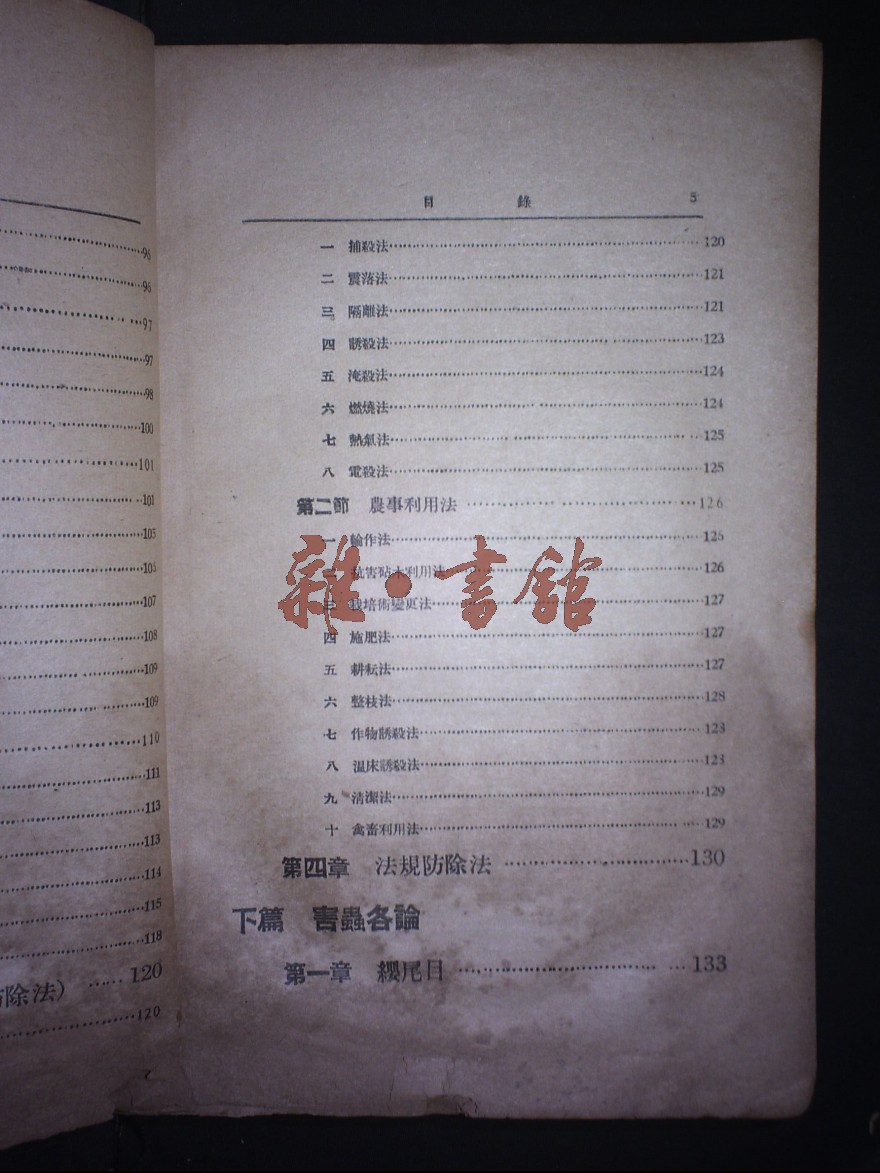 96
96
97
97
98
100
101
101
105
105
107
108
109
109
110
111
113
113
114
115
118
除法)……120
120
目 錄 5
一 捕殺法……120
二 震落法……121
三 隔離法……121
四 誘殺法……123
五 淹殺法……124
六 燃燒法……124
七 熱氣法……125
八 電殺法……125
第二節 農事利用法……126
一 輪作法……126
二 抗害砧木利用法……126
三 栽培術變更法……127
四 施肥法……127
五 耕耘法……127
六 整枝法……128
七 作物誘殺法……128
八 溫床誘殺法……128
九 清潔法……129
十 禽畜利用法……129
第四章 法規防除法……130
下篇 害蟲各論
第一章 纓尾目……133
雜·書館